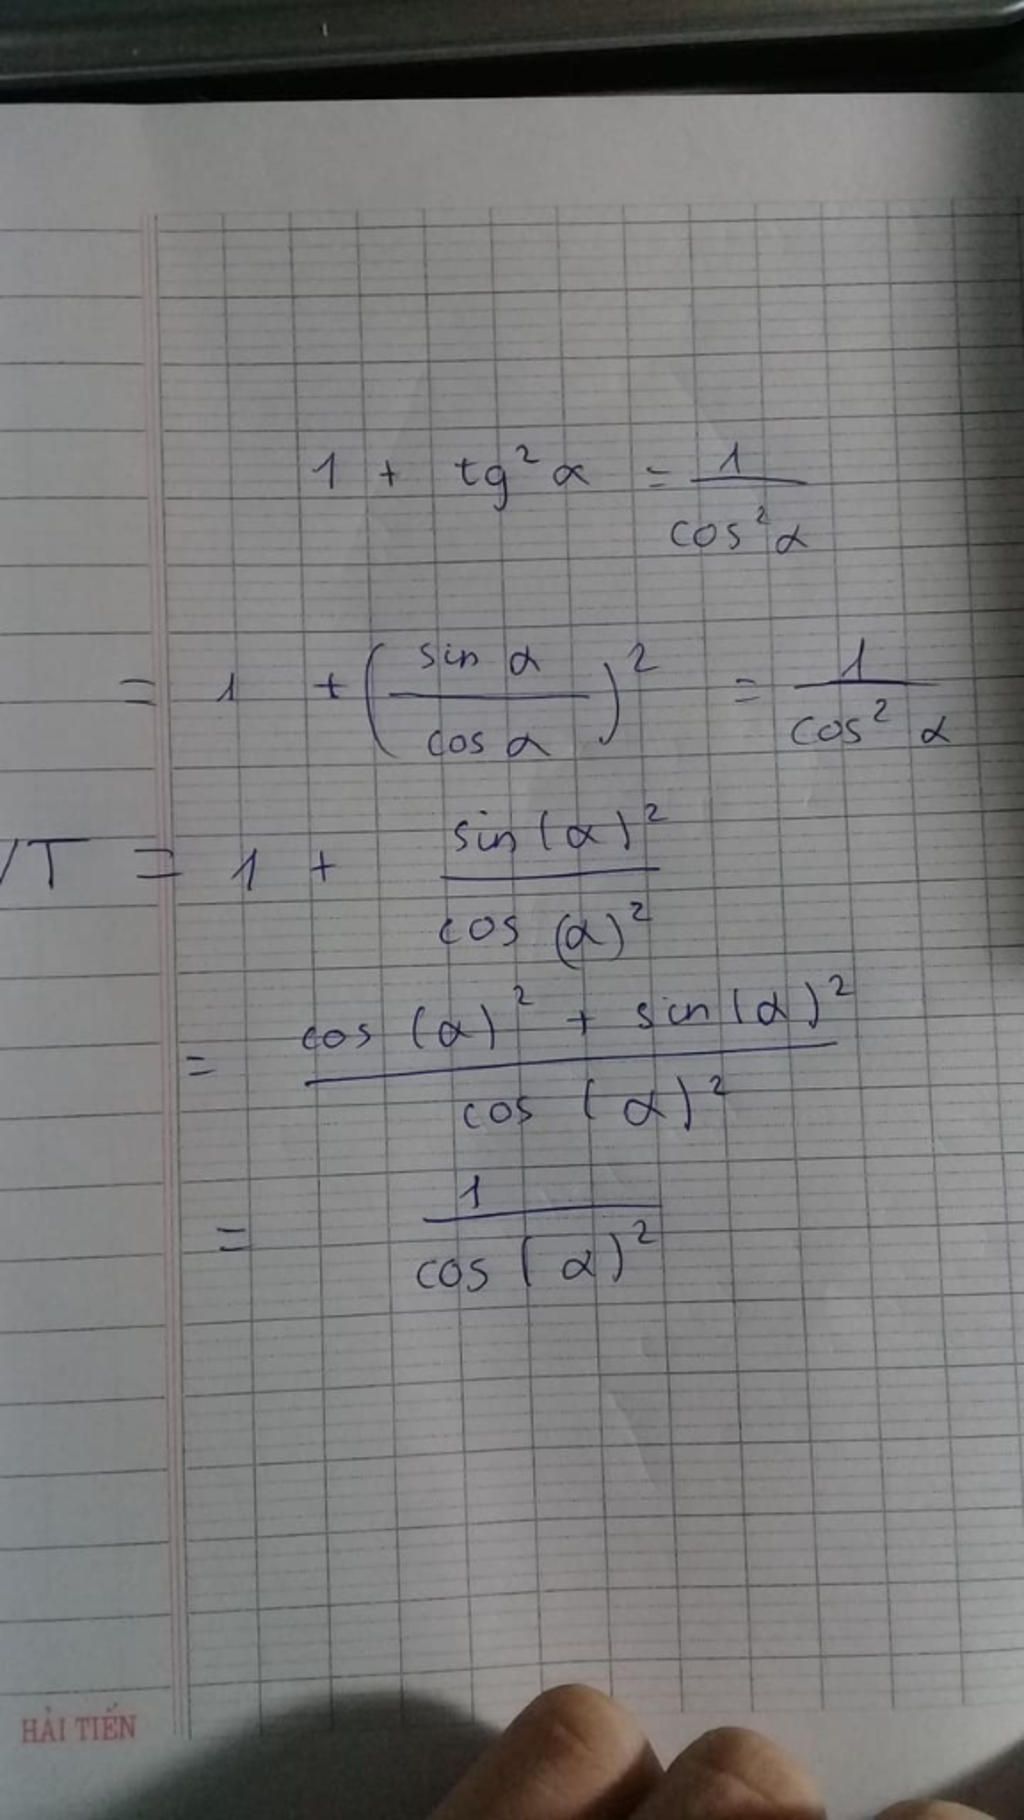 1 + tg²α = 1/cos²α
= 1 + (sin α/cos α)² = 1/cos² α
VT = 1 + sin(α)²/cos (α)²
= cos (α)² + sin(α)²/cos (α)²
= 1/cos (α)²
HẢI TIẾN